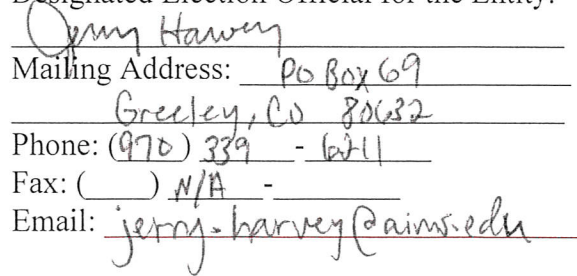 Designated Election Official for the Entity:
Jerry Harvey
Mailing Address: PO Box 69
Greeley, CO 80632
Phone: (970) 339 -
Fax: ( ) N/A -
Email: jerry.harvey@aims.edu